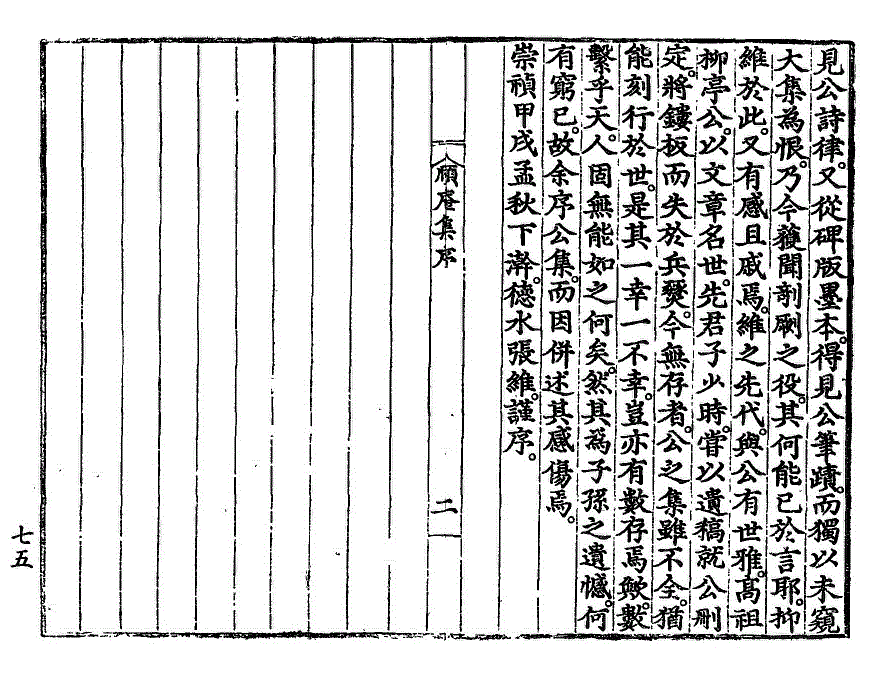 見公詩律。又從碑版墨本。得見公筆蹟。而獨以未窺
大集為恨。乃今獲聞剞劂之役。其何能已於言耶。抑
維於此。又有感且戚焉。維之先代。與公有世雅。高祖
柳亭公。以文章名世。先君子少時。嘗以遺稿就公刪
定。將鏤板而失於兵燹。今無存者。公之集雖不全。猶
能刻行於世。是其一幸一不幸。豈亦有數存焉歟。數
繫乎天。人固無能如之何矣。然其為子孫之遺憾。何
有窮已。故余序公集。而因併述其感傷焉。
崇禎甲戌孟秋下澣。德水張維。謹序。
頤庵集序
二
七五